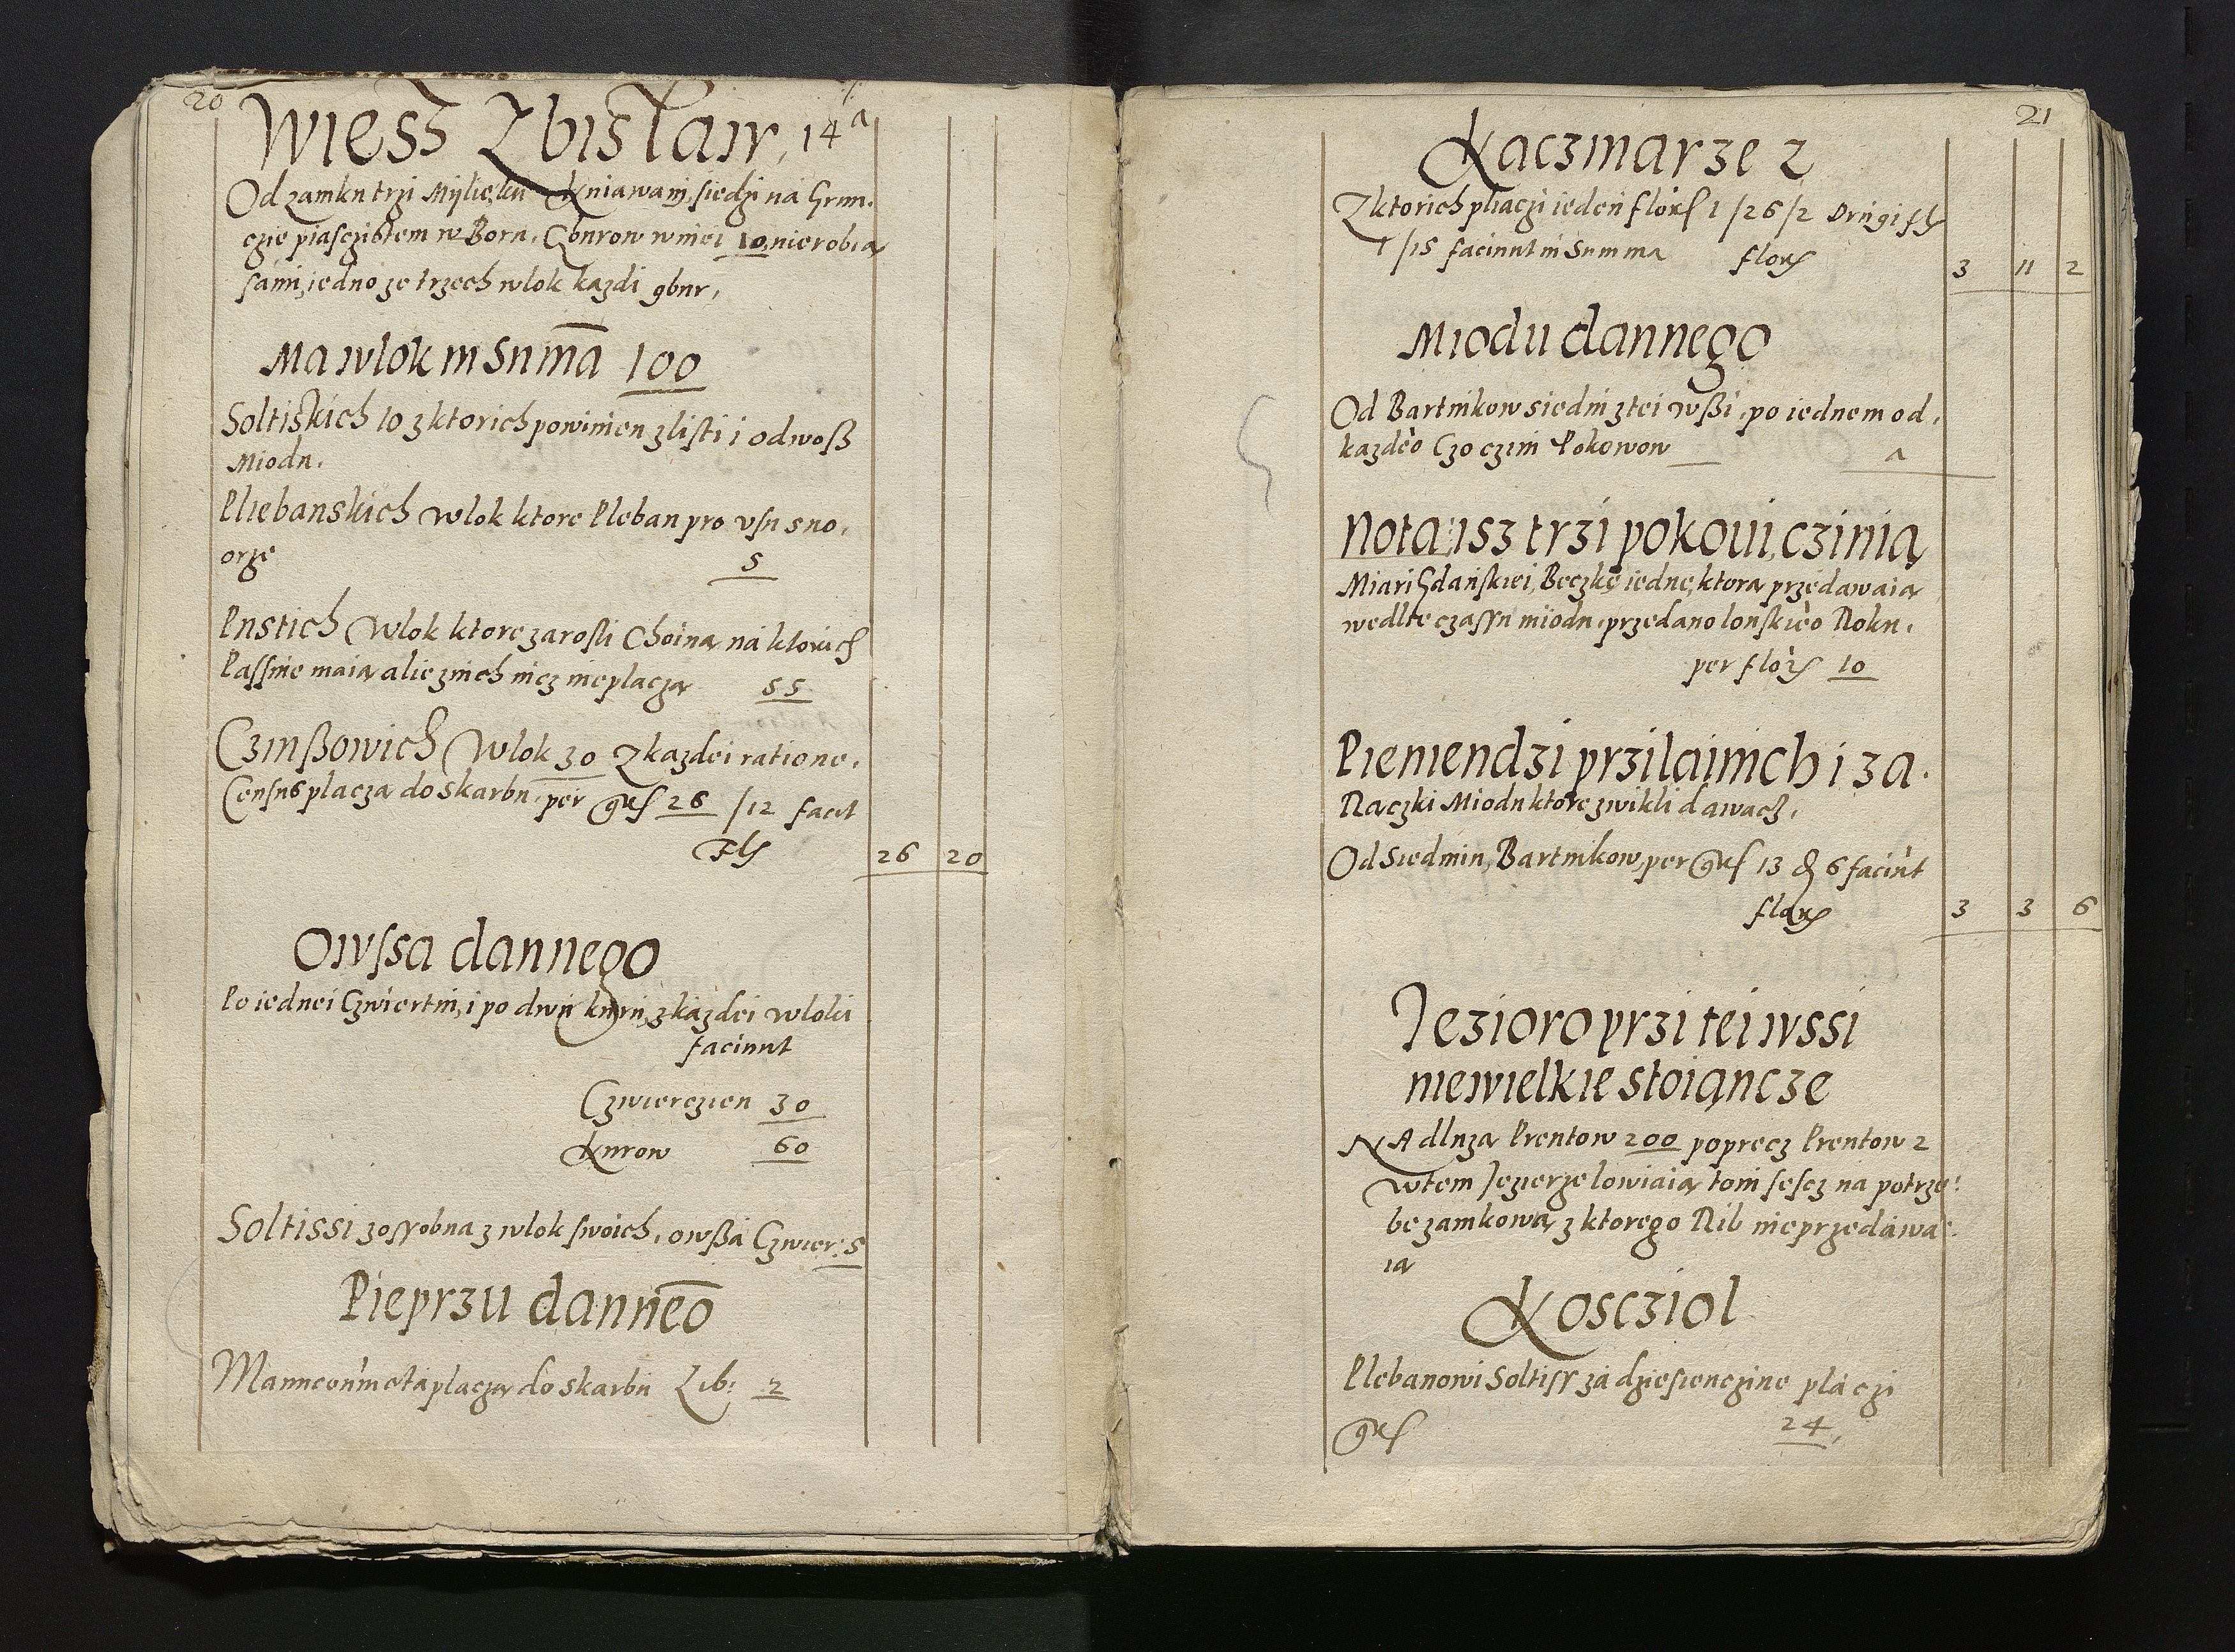 20
Wiesz Zbislaw, 14a
Od zamku trzi Mylie, ku Kuiawam, siedzi na Grun.
czie piasczistem w Boru, Gburow w niei 10, nie robia
sami, iedno ze trzech wlok kazdi gbur,
Ma wlok in Suma 100
Soltiskich 10 z ktorich powinien z listi i odwoß
Miodu.
Pliebanskich wlok ktore Pleban pro usu suo,
orze 5
Pustich wlok ktore zarosli Choina na ktorich
Passnie maia alie z nich nicz nie placza 55
Czinßowich wlok 30 z kazdei ratione,
Census placza do skarbu, per grs 26 /12 facit
Fls 26 20
Owssa dannego
Po iednei Czwiertni, i po dwu kuru, z kazdei wloki
faciunt
Czwierczien 30
Kurow 60
Soltissi zossobna z wlok swoich, owßa Czwier: 5
Pieprzu danneo
Manneo placza do skarbu Lib: 2
21
Kaczmarze 2
Z ktorich pliaczi ieden Flors 1 /26/2 Drugi fls
1 /15 faciunt in Summa flors 3 11 2
Miodu dannego
Od Bartnikow siedm z tei wßi, po iednem od,
kazdeo Czo czini Pokowow
Nota: isz trzi pokowi, czinią
Miari Gdanskiei, Beczkę iednę, ktora przedawaia
wedlie czassu miodu, przedano lonskieo Roku,
per flors 10
Pieniendzi przilaimich i za.
Raczki Miodu ktore zwikli dawacz,
Od Siedmiu, Bartnikow, per grs 13 d 6 faciunt
flors 3 3 6
Jezioro przi tei wssi
niewielkie stoiącze
NA dluza Prentow 200 poprecz Prentow 2
w tem Jezierze lowiaia toni sescz na potrze:
be zamkowa, z ktorego Rib nie przedawa:
ia
Kosczioł
Plebanowi Soltiss za dziesienczine placzi
grs 24,